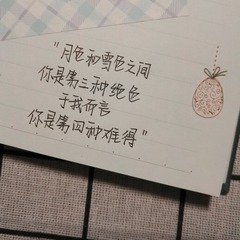 "月色和雪色之间
你是第三种绝色
于我而言
你是第四种难得"